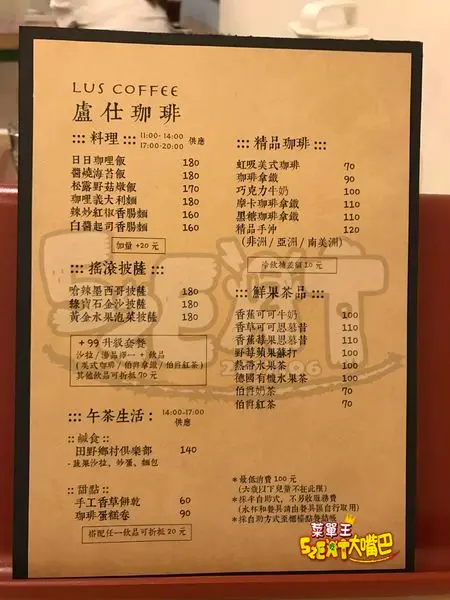 LUS COFFEE
盧仕珈琲
::: 料理 ::: 11:00- 14:00 17:00-20:00 供應
日日咖哩飯 180
醬燒海苔飯 180
松露野菇燉飯 170
咖哩義大利麵 180
辣炒紅椒香腸麵 160
白醬起司香腸麵 160
加量 +20 元
::: 搖滾披薩 :::
嗆辣墨西哥披薩 180
綠寶石金沙披薩 180
黃金水果泡菜披薩 180
+99 升級套餐
沙拉/湯品擇一 + 飲品
(美式咖啡/伯爵拿鐵/伯爵紅茶)
其他飲品可折抵 70 元
::: 午茶生活 : 14:00-17:00 供應
:: 鹹食 ::
田野鄉村俱樂部 140
- 蔬果沙拉、炒蛋、麵包
:: 甜點 ::
手工香草餅乾 60
咖啡蛋糕卷 90
搭配任一飲品可折抵 20 元
::: 精品珈琲 :::
虹吸美式珈琲 70
珈琲拿鐵 90
巧克力牛奶 100
摩卡珈琲拿鐵 110
黑糖珈琲拿鐵 110
精品手沖 120
(非洲/亞洲/南美洲)
冷飲補差額10元
::: 鮮果茶品 :::
香蕉可可牛奶 100
香草可可恩慕昔 110
香蕉莓果恩慕昔 110
野莓蘋果蘇打 100
熱帶水果茶 100
德國有機水果茶 100
伯爵奶茶 70
伯爵紅茶 70
*最低消費 100 元
(六歲以下兒童不在此限)
*採半自助式，不另收服務費
(水杯和餐具請由餐具區自行取用)
*採自助方式至櫃檯點餐結帳
菜單王
SZEAT大嘴巴